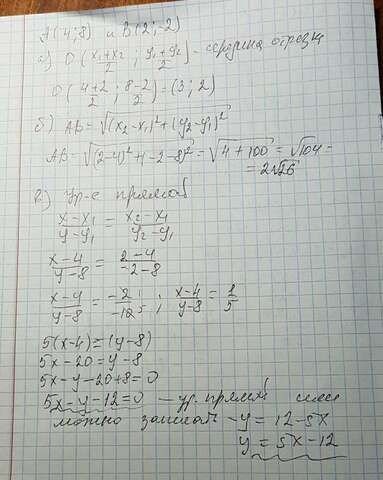 A(4;8) и B(2;-2)
а) O(x₁+x₂/2; y₁+y₂/2) - середина отрезка
O(4+2/2; 8-2/2) = (3;2)
б) AB = √(x₂-x₁)²+(y₂-y₁)²
AB = √(2-4)²+(-2-8)² = √4+100 = √104 =
= 2√26
в) Ур-е прямой
x-x₁/y-y₁ = x₂-x₁/y₂-y₁
x-4/y-8 = 2-4/-2-8
x-4/y-8 = -2/-10 5 ; x-4/y-8 = 1/5
5(x-4) = (y-8)
5x-20 = y-8
5x-y-20+8=0
5x-y-12=0 - ур. прямой или
можно записать -y = 12-5x
y = 5x-12